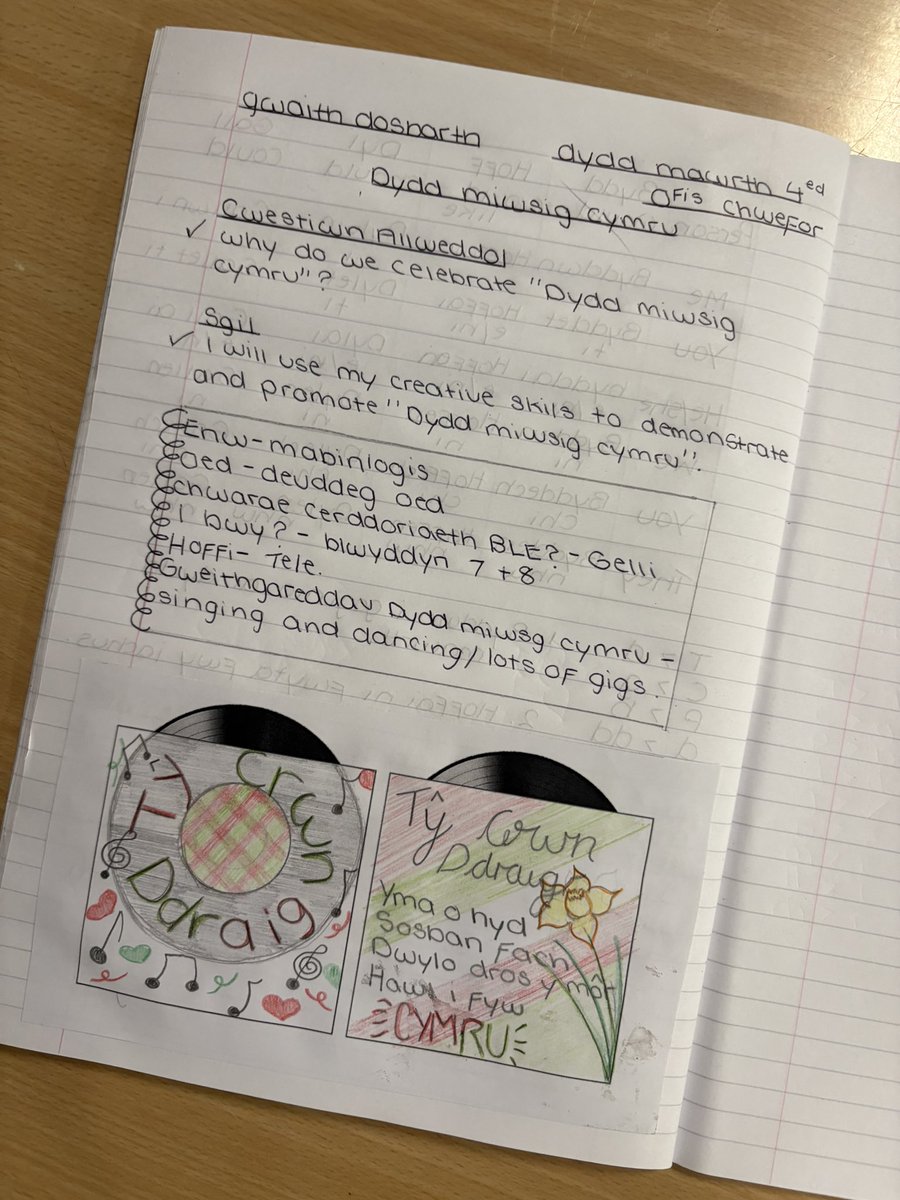 gwaith dosbarth
dydd mawrth 4ed
OFis chwefor
Dydd miwsig cymru
Cwestiwn Allweddol
✓ why do we celebrate "Dydd miwsig
cymru"?
Sgil
✓ I will use my creative skils to demonstrate
and promote "Dydd miwsig cymru".
Enw - mabinlogis
Oed - deuddeg oed
chwarae cerddoriaeth BLE? - Gelli
I bwy? - blwyddyn 7 + 8
HOFFi - Tele.
Gweithgareddau Dydd miwsg cymru -
singing and dancing / lots OF gigs.
TY Crwn
Ddraig
Tŷ Crwn
Ddraig
Yma o hyd
Sosban Fach
Dwylo dros y môr
Hawl i Fyw
CYMRU